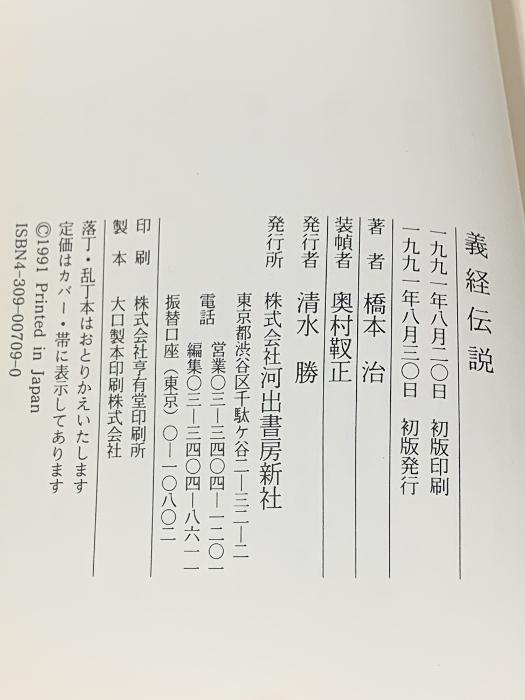 義経伝説
一九九一年八月二〇日 初版印刷
一九九一年八月三〇日 初版発行
著者 橋本治
装幀者 奥村靫正
発行者 清水勝
発行所 株式会社河出書房新社
東京都渋谷区千駄ヶ谷二—三二—二
電話 営業〇三—三四〇四—一二〇一
編集〇三—三四〇四—八六一一
振替口座（東京）〇—一〇八〇二
印刷 株式会社亨有堂印刷所
製本 大口製本印刷株式会社
落丁・乱丁本はおとりかえいたします
定価はカバー・帯に表示してあります
©1991 Printed in Japan
ISBN4-309-00709-0